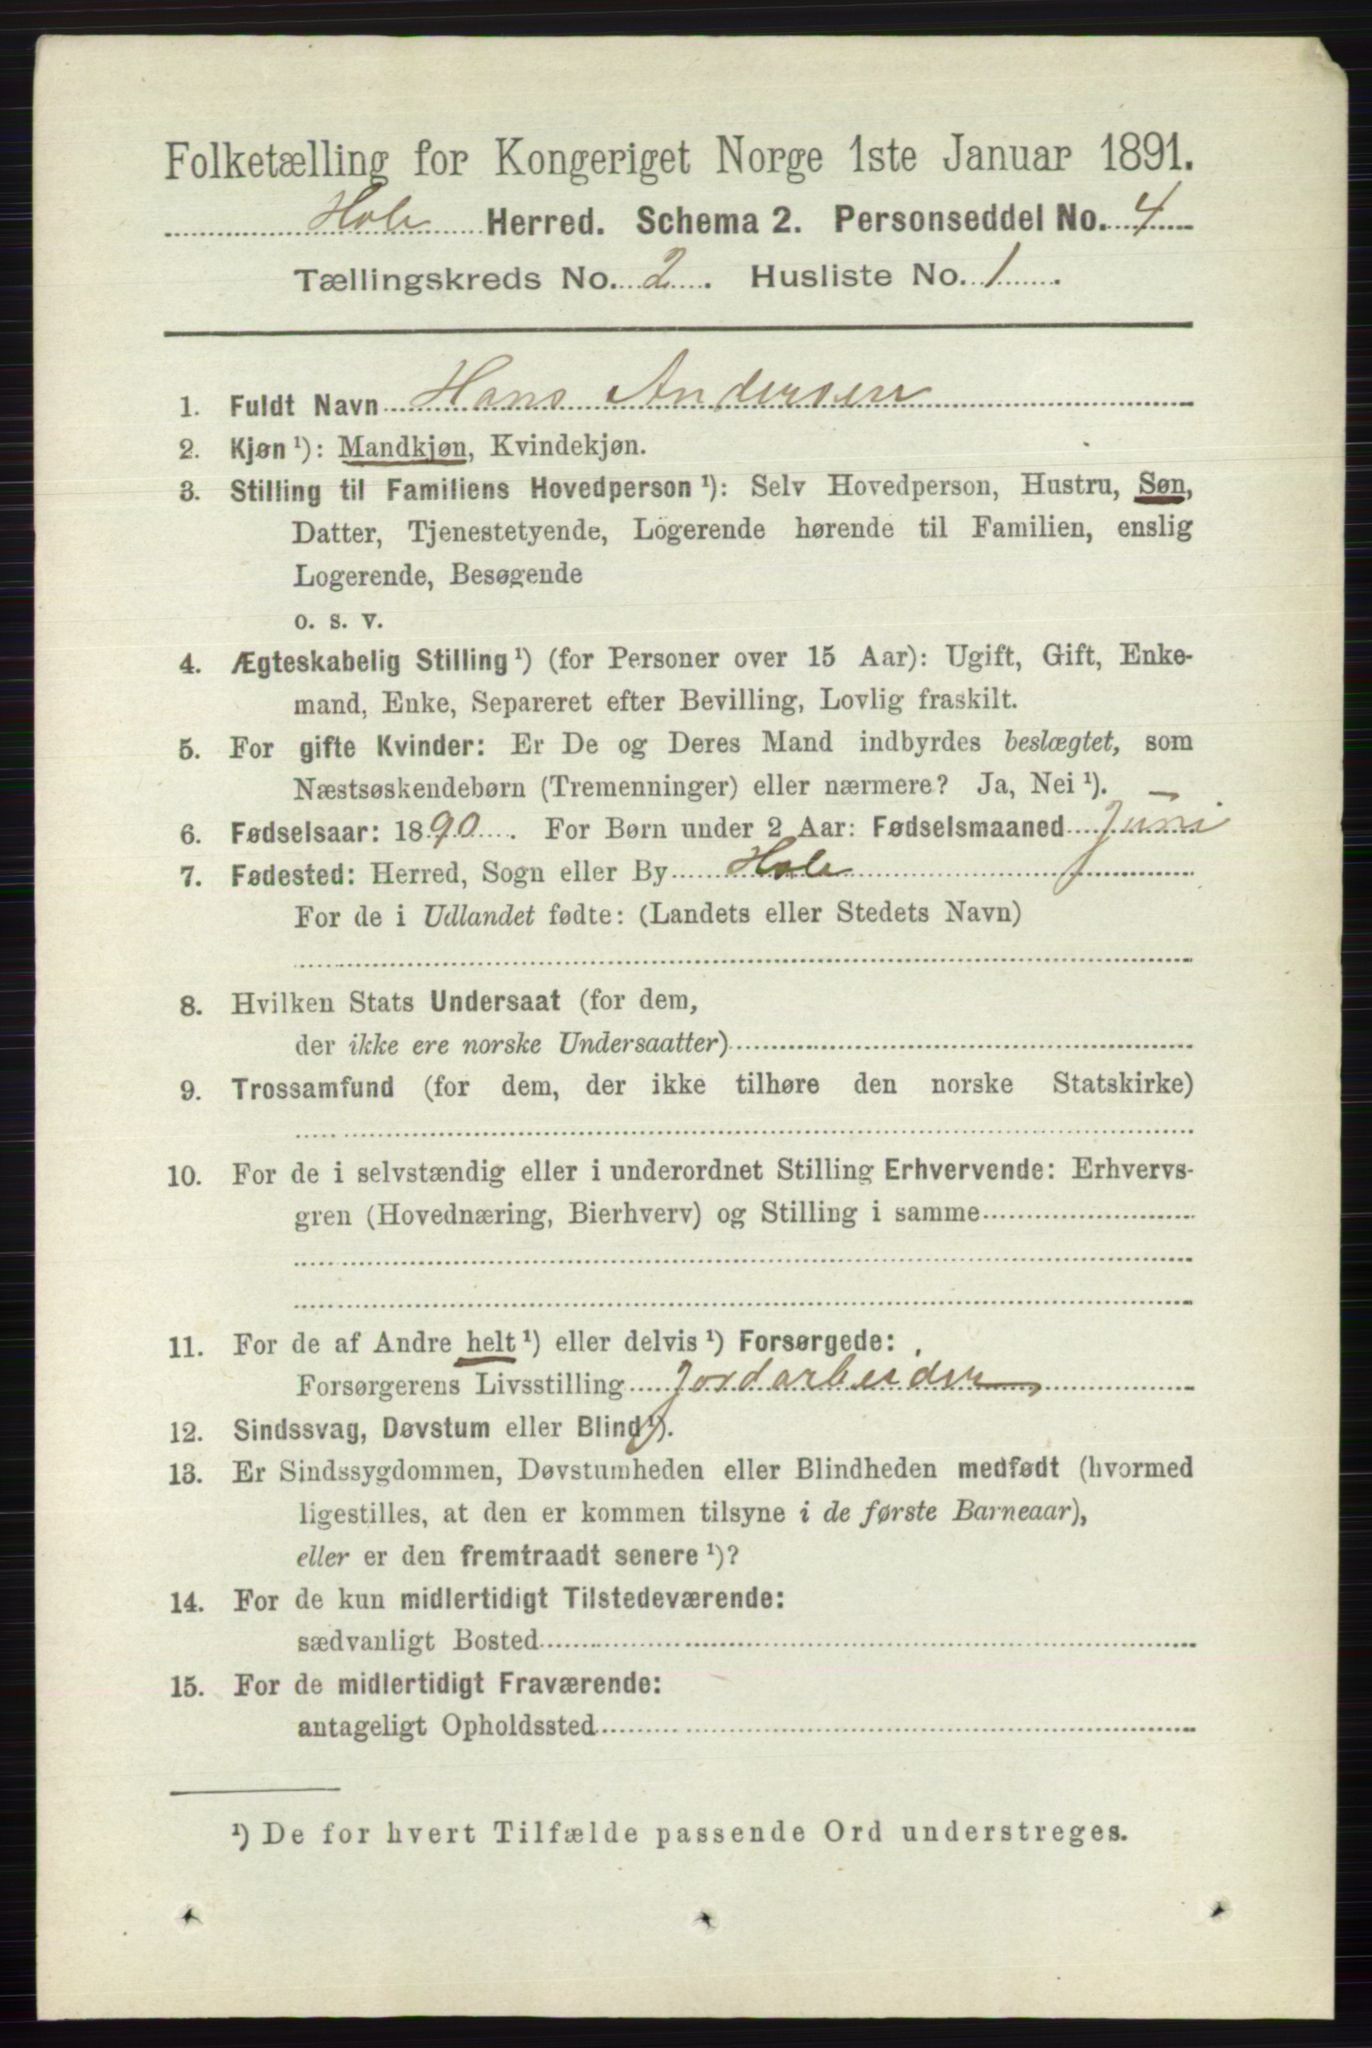 Folketælling for Kongeriget Norge 1ste Januar 1891.
Hole Herred. Schema 2. Personseddel No. 4
Tællingskreds No. 2. Husliste No. 1.
1. Fuldt Navn Hans Andersen
2. Kjøn ¹): Mandkjøn, Kvindekjøn.
3. Stilling til Familiens Hovedperson ¹): Selv Hovedperson, Hustru, Søn,
Datter, Tjenestetyende, Logerende hørende til Familien, enslig
Logerende, Besøgende
o. s. v.
4. Ægteskabelig Stilling ¹) (for Personer over 15 Aar): Ugift, Gift, Enke-
mand, Enke, Separeret efter Bevilling, Lovlig fraskilt.
5. For gifte Kvinder: Er De og Deres Mand indbyrdes beslægtet, som
Næstsøskendebørn (Tremenninger) eller nærmere? Ja, Nei ¹).
6. Fødselsaar: 1890. For Børn under 2 Aar: Fødselsmaaned Juni
7. Fødested: Herred, Sogn eller By Hole
For de i Udlandet fødte: (Landets eller Stedets Navn)
8. Hvilken Stats Undersaat (for dem,
der ikke ere norske Undersaatter)
9. Trossamfund (for dem, der ikke tilhøre den norske Statskirke)
10. For de i selvstændig eller i underordnet Stilling Erhvervende: Erhvervs-
gren (Hovednæring, Bierhverv) og Stilling i samme
11. For de af Andre helt ¹) eller delvis ¹) Forsørgede:
Forsørgerens Livsstilling Jordarbeider
12. Sindssvag, Døvstum eller Blind ¹).
13. Er Sindssygdommen, Døvstumheden eller Blindheden medfødt (hvormed
ligestilles, at den er kommen tilsyne i de første Barneaar),
eller er den fremtraadt senere ¹)?
14. For de kun midlertidigt Tilstedeværende:
sædvanligt Bosted
15. For de midlertidigt Fraværende:
antageligt Opholdssted
¹) De for hvert Tilfælde passende Ord understreges.